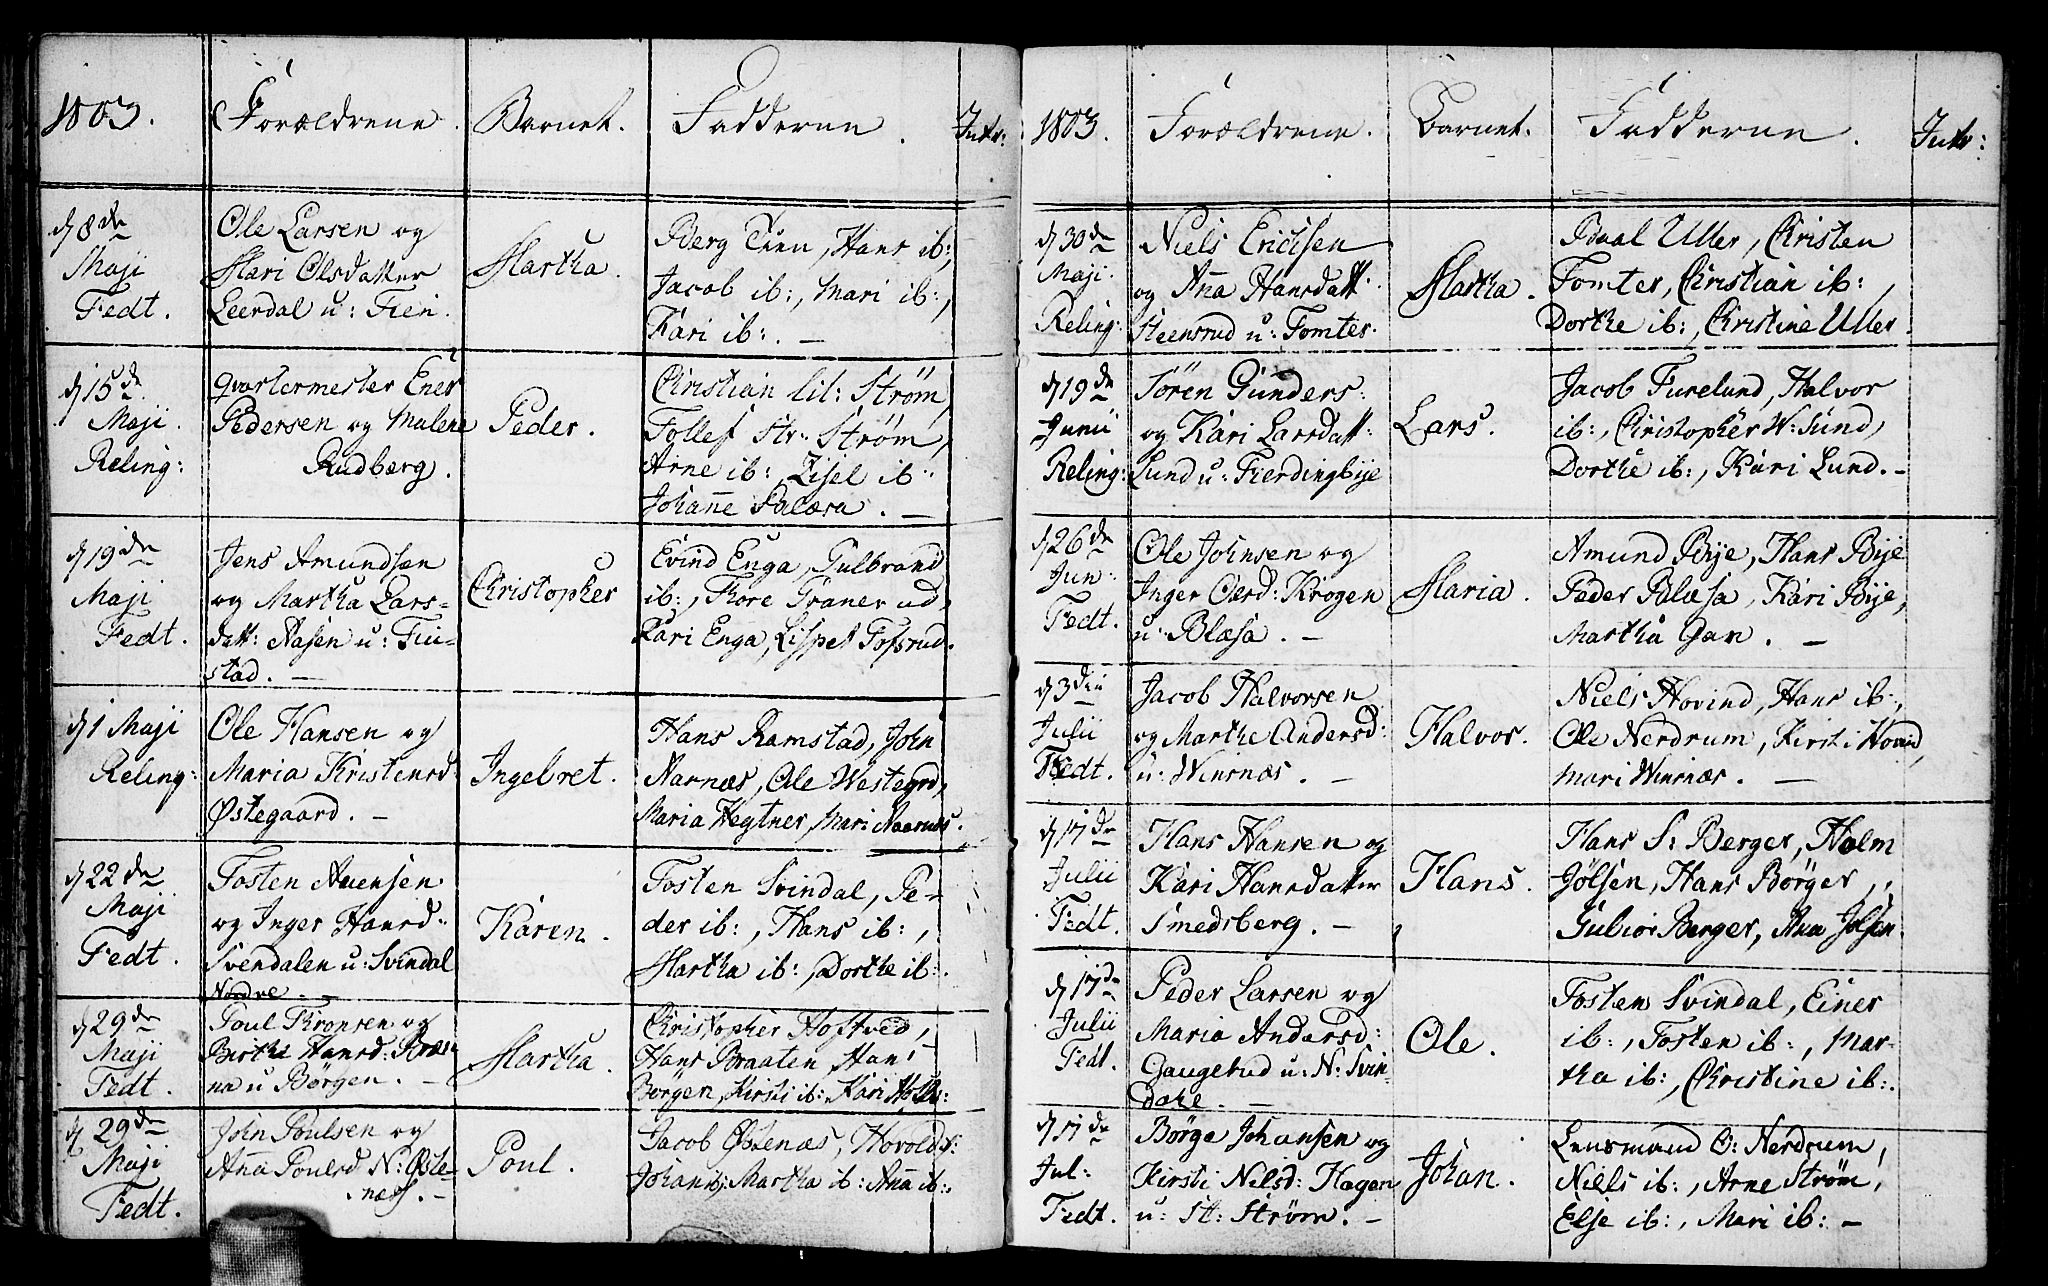 1803.
Forældrene.
Barnet.
Fadderne.
Intr:
d 8de
Maji
Fedt.
Ole Larsen og
Mari Olsdatter
Leerdal u: Tien.
Martha.
Berg Tien, Hans ib:,
Jacob ib:, Mari ib:,
Kari ib:. —
d 15de
Maji.
Reling:
Qvartermester Ener
Pedersen og Malene
Rudberg.
Peder.
Christian lil: Strøm,
Tollef Str: Strøm,
Arne ib:, Lisel ib:
Johanne
d 19de
Maji
Fedt.
Jens Amundsen
og Martha Lars-
datt: Aasen u: Tiu-
stad. —
Christopher
Evind Enga, Gulbrand
ib:, Thore
Kari Enga, Lispet Tofsrud.
d 1 Maji
Reling:
Ole Hansen og
Maria Kristensd
Østegaard. —
Ingebret.
Hans Ramstad, John
Narnæs, Ole Westegrd,
Maria Hegtner, Mari Naarnæs.
d 22de
Maji
Fedt.
Tosten Auensen
og Inger Hansd:
Svendalen u: Svindal
Nordre. —
Karen.
Tosten Svindal, Pe-
der ib:, Hans ib:,
Martha ib:, Dorthe ib:.
d 29de
Maji
Fedt.
Poul Thronsen og
Birthe Hansd:
na u Børgen. —
Martha.
Christopher Hoftved,
Hans Braaten, Hans
Børgen, Kirsti ib:, Kari
d 29de
Maji
Fedt.
John Poulsen og
Anna Poulsd N: Øste-
næss. —
Poul.
Jacob Østenæs, Hovold ib:
Johan ib: Martha ib: Anna ib:.
1803.
Forældrene.
Barnet.
Fadderne.
Intr:
d 30de
Maji.
Reling:
Niels Ericksen
og Anna Hansdatt:
Steensrud u: Tomter.
Martha.
Paal Uller, Christen
Tomter, Christian ib:,
Dorthe ib:, Christine Uller.
d 19de
Junii
Reling:
Søren Gunders:
og Kari Larsdatt:
Lund u: Fierdingbye
Lars.
Jacob Furelund, Halvor
ib:, Christopher W: Sund,
Dorthe ib:, Kari Lund. —
d 26de
Jun:
Fedt.
Ole Johnsen og
Inger Christ: Krogen
u: Blæsa. —
Maria.
Amund Bye, Hans Bye
Peder Blæsa, Kari Bye,
Martha Gan. —
d 3die
Julii
Fedt.
Jacob Halvorsen
og Marthe Andersd:
u: Winsnæs. —
Halvor.
Niels Hovind, Hans ib:,
Ole Nerdrum, Kirsti Hovind,
Mari Winsnæs. —
d 17de
Julii
Fedt.
Hans Hansen og
Kari Hansdatter
Smedsberg. —
Hans.
Hans S: Berger, Holm
Jølsen, Hans Børger,
Gulior Berger, Ana Jølsen.
d 17de
Julii
Fedt.
Peder Larsen og
Maria Andersd:
Gaugerud u: N: Svin-
dahl. —
Ole.
Tosten Svindal, Einer
ib:, Tosten ib:, Mar-
tha ib:, Christine ib:.
d 17de
Jul:
Fedt.
Børge Johansen og
Kirsti Nilsd: Hagen
u: St: Strøm. —
Johan.
Lensmand O: Nerdrum,
Niels ib:, Arne Strøm,
Else ib:, Mari ib: —